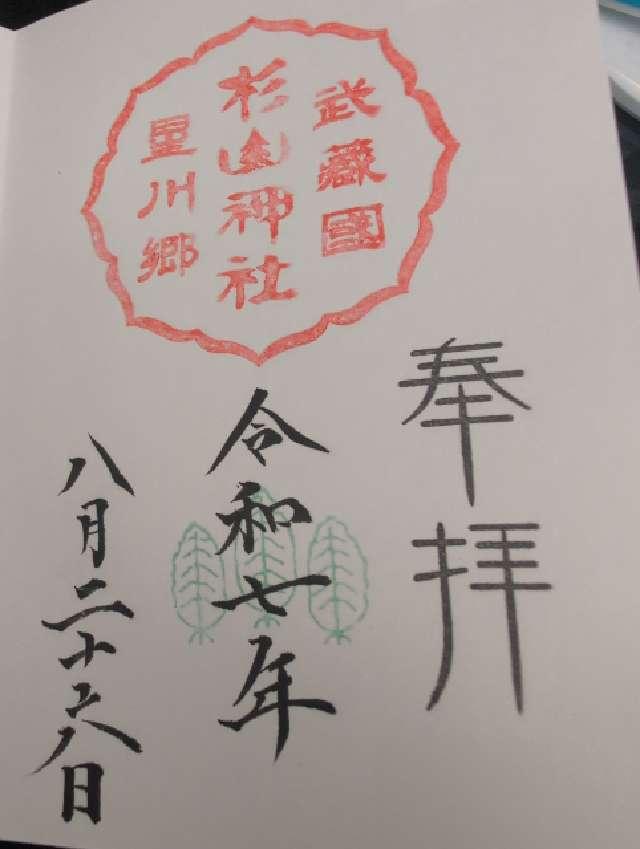 武蔵國
杉山神社
星川郷
奉拝
令和七年
八月二十六日